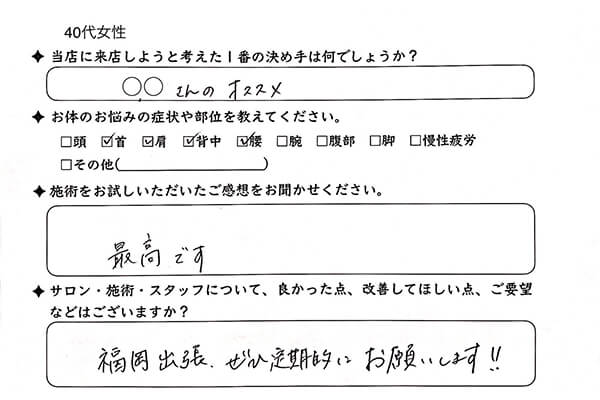 40代女性
✦当店に来店しようと考えた1番の決め手は何でしょうか？
○○さんのオススメ
✦お体のお悩みの症状や部位を教えてください。
□頭 ☑首 ☑肩 ☑背中 ☑腰 □腕 □腹部 □脚 □慢性疲労
□その他( )
✦施術をお試しいただいたご感想をお聞かせください。
最高です
✦サロン・施術・スタッフについて、良かった点、改善してほしい点、ご要望
などはございますか？
福岡出張、ぜひ定期的にお願いします!!